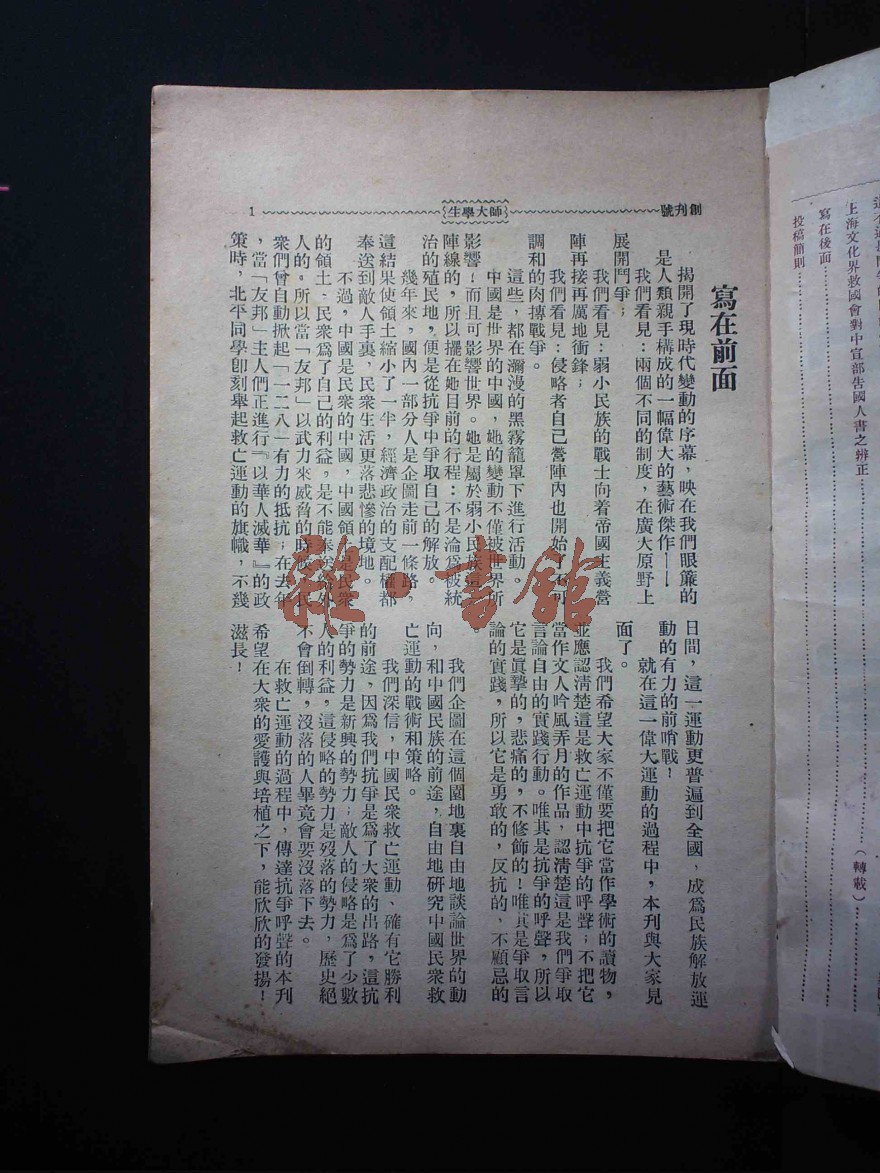 創刊號
師大學生
1
寫在前面
揭開了現時代變動的序幕，映在我們眼簾的
是人類親手構成的一幅偉大的藝術傑作——
我們看見：兩個不同的制度，在廣大原野上
展開鬥爭；
我們看見：弱小民族的戰士向着帝國主義營
陣再接再厲地衝鋒；
我們看見：侵略者自己營陣內也開始了不可
調和的肉搏戰爭。
這些，都在瀰漫的黑霧籠罩下進行活動。
中國是世界的中國，她的變動不僅被世界所
影響！而且可影響世界。她是屬於弱小民族這一
陣線的，所以擺在她目前的行程：不是淪爲被統
治的殖民地，便是從抗爭中爭取自己的解放。
幾年來，國內一部分人是企圖走前一條路，
這結果使領土縮小了一半，經濟政治的支配權都
奉送到敵人手裏，民衆生活更落悲慘的境地。
不過，中國是民衆的中國，中國領土是民衆
的領土．民衆爲了自己的利益，是不能奉送給外
人的。所以當「友邦」以武力來威脅的時候，民
衆們曾自動掀起「一二八」有力的抵抗；在去年
，當「友邦」主人們正進行『以華人滅華』的政
策時，北平同學卽刻舉起救亡運動的旗幟，不幾
日間，這一運動更普遍到全國，成爲民族解放運
動的有力的前哨戰！
就在這一偉大運動的過程中，本刊與大家見
面了。
我們希望大家不僅要把它當作學術的讀物，
並應認清楚這是救亡運動中抗爭的呼聲；不把它
當作文人吟風弄月的作品，認清楚這是我們爭取
言論自由的實踐行動。唯其是抗爭的呼聲，所以
它是眞摯的，悲痛的，不修飾的！唯其是爭取言
論的實踐，所以它是勇敢的，反抗的，不顧忌的
。
我們企圖在這個園地裏自由地談論世界的動
向，和中國民族的前途，自由地研究中國民衆救
亡運動的戰術和策略。
我們深信，中國民衆救亡運動、確有它勝利
的前途，因爲我們抗爭是爲了大衆的出路，這抗
爭的勢力是新興的勢力；敵人的侵略是爲了少數
人的利益，這侵略的勢力是歿落的勢力，歷史絕
不會倒轉，沒落的人畢竟會要沒落下去。
在救亡運動的過程中，傳達抗爭呼聲的本刊
希望在大衆的愛護與培植之下，能欣欣的發揚！
滋長！
上海文化界救國會對中宣部告國人書之辨正……（轉載）……
寫在後面……
投稿簡則……
雜·書館